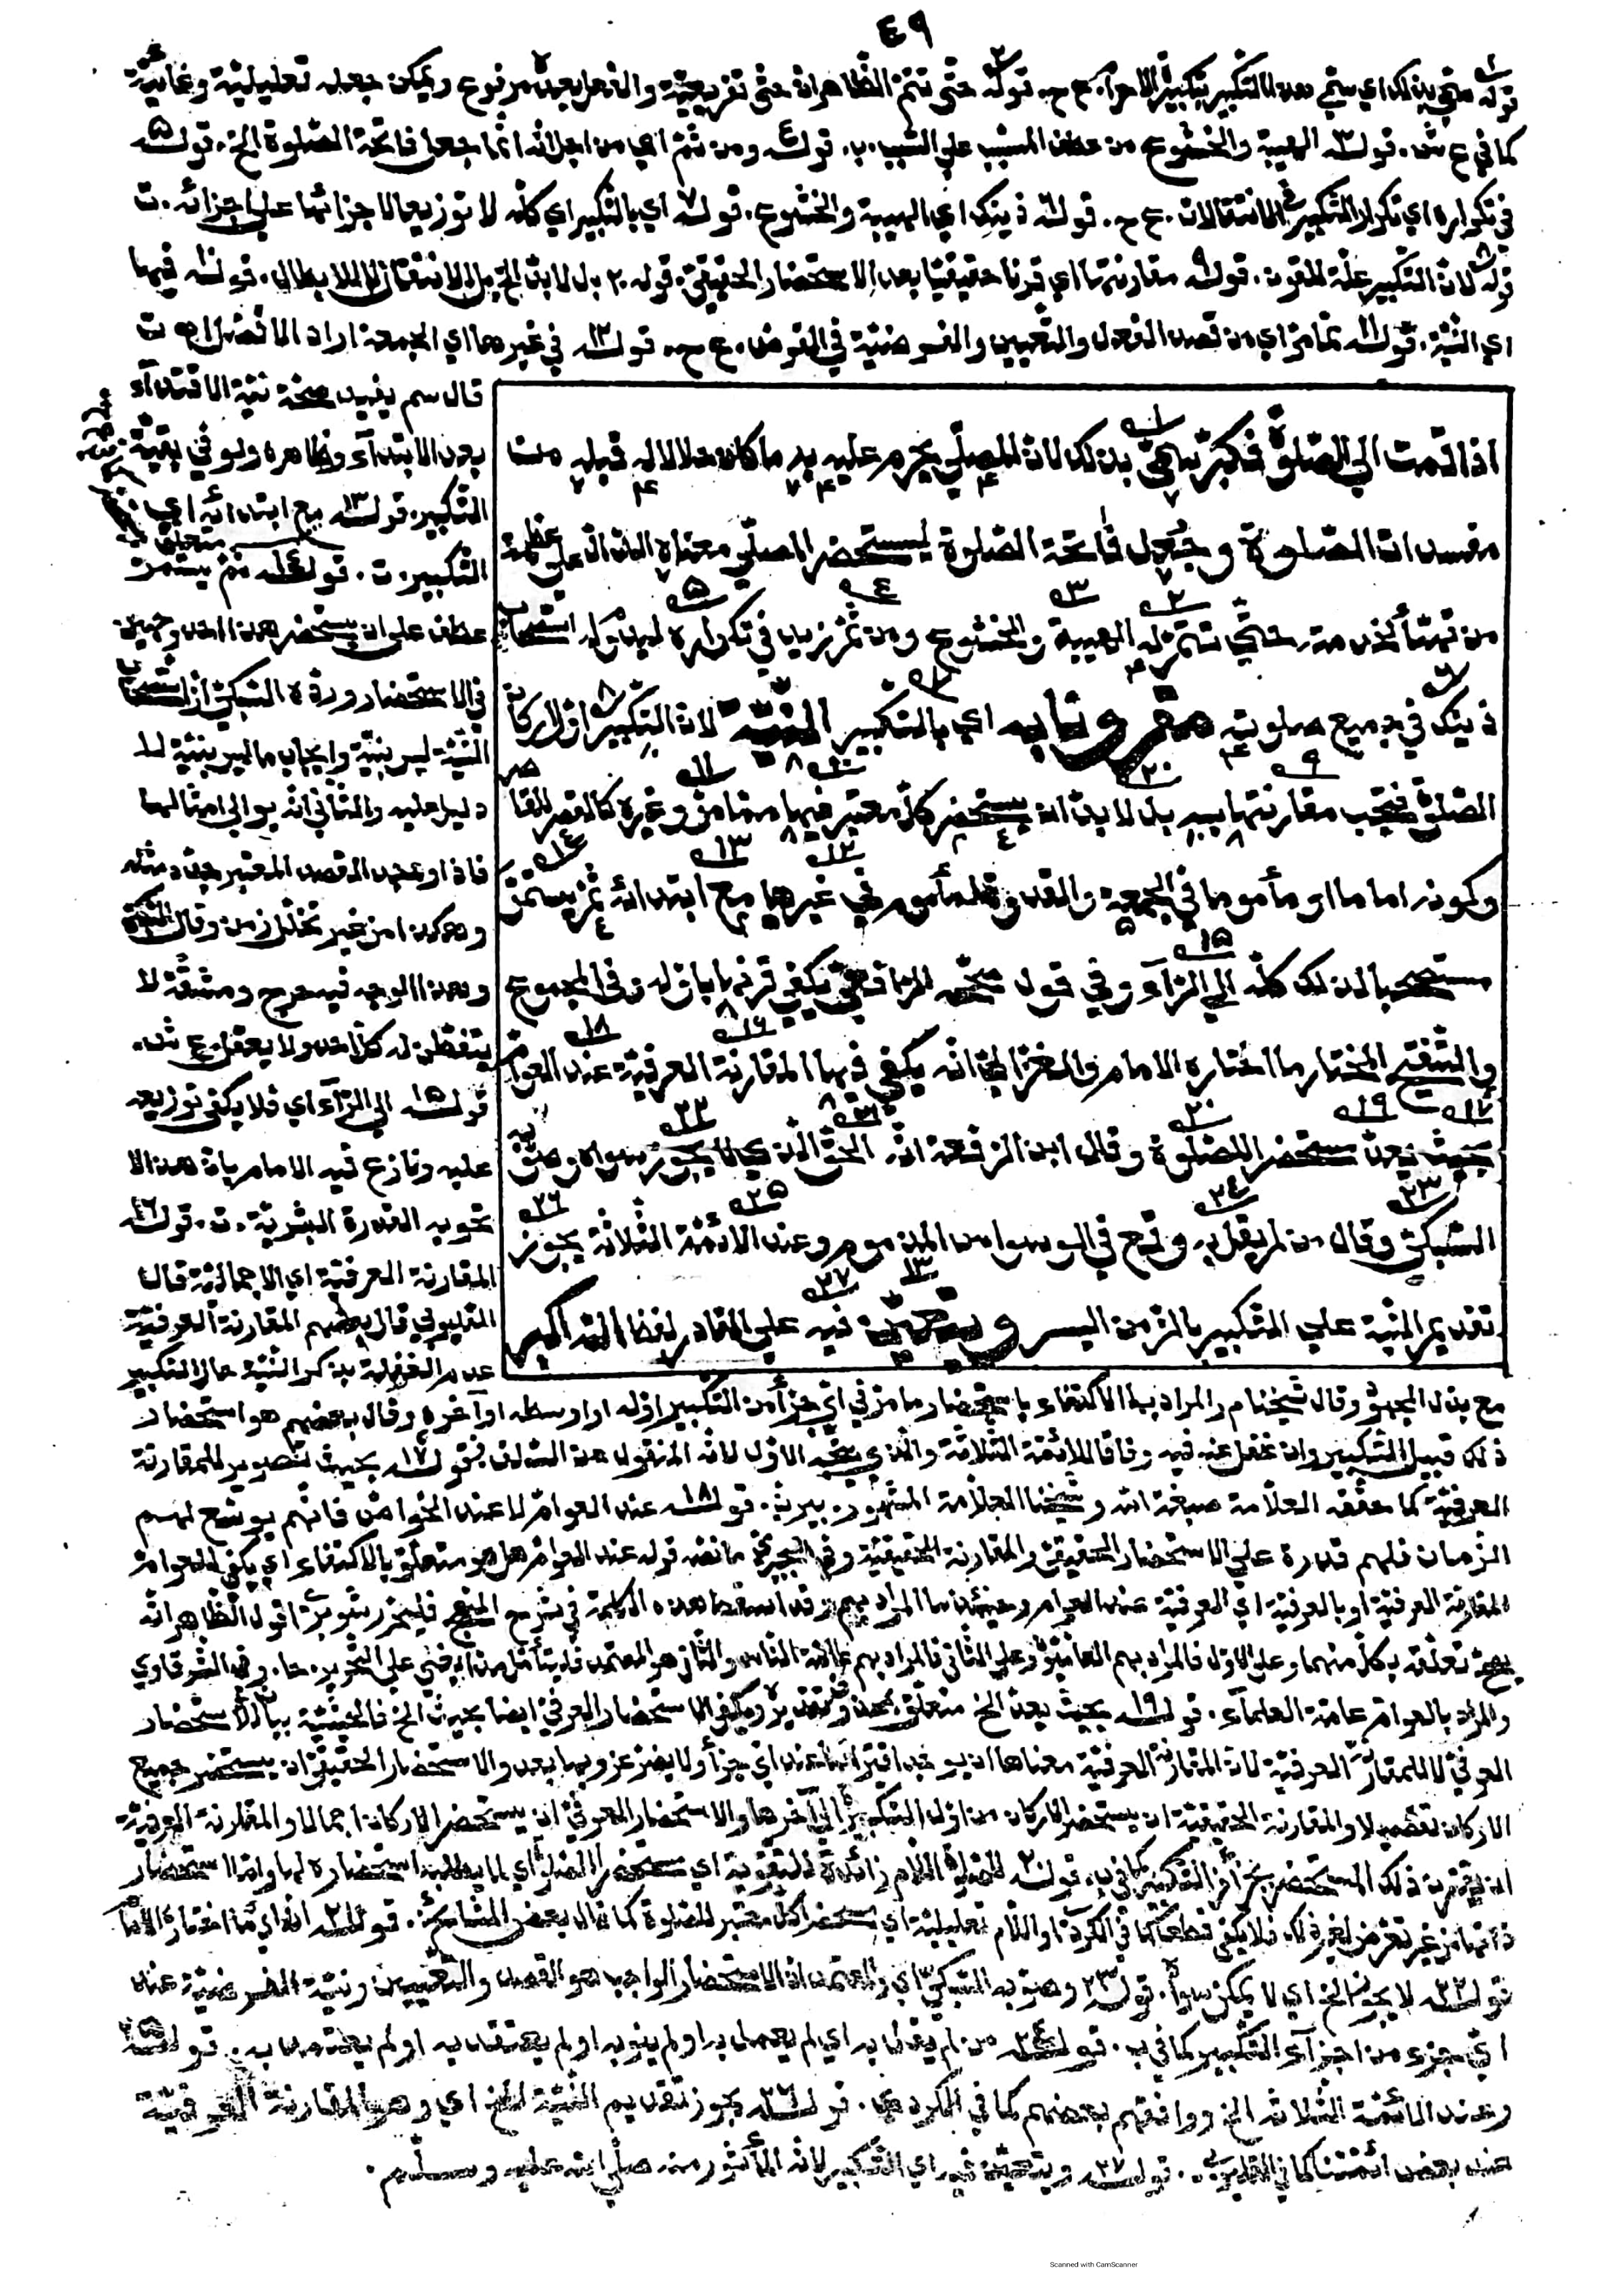 ٤٩
قوله سمّي بذلك اي سمّي هذا التكبير بتكبير الاحرام. ع ح. قوله حتّى تتمّ الظّاهر انّ حتّى تفريعيّة والفعل بعده مرفوع ويمكن جعله تعليليّة وغائيّة
كما في ع ش. قوله الهيبة والخشوع من عطف المسبب علي السّبب. ب. قوله ومن ثمّ اي من اجل انّه انّما جعل فاتحة الصّلوة الخ. قوله
في تكراره اي تكرار التّكبير في الانتقالات. ع ح. قوله ذينك اي الهيبة والخشوع. قوله اي بالتّكبير اي كلّه لا توزيعا لاجزائها علي اجزائه. ت
قوله لانّ التّكبير علّة للمقرون. قوله مقارنتها اي قرنا حقيقيّا بعد الاستحضار الحقيقيّ. قوله بل لا بدّ الخ بل للانتقال لا للابطال. قوله فيها
اي النّيّة. قوله ممّا مرّ اي من قصد الفعل والتّعيين والفرضيّة في الفرض. ع ح. قوله في غيرها اي الجمعة اراد الافضل ت
اذا قمت الي الصّلوة فكبّر سمّي بذلك لانّ المصلّي يحرم عليه به ما كان حلالا له قبله من
مفسدات الصّلوة وجعل فاتحة الصّلوة ليستحضر المصلّي معناه الدّالّ علي عظمة
من تهيّأ لخدمته حتّي تتمّ له الهيبة والخشوع ومن ثمّ زيد في تكراره ليدوم له استصحاب
ذينك في جميع صلوته مقرونا به اي بالتّكبير النّيّة لانّ التّكبير اوّل اركان
الصّلوة فتجب مقارنتها به بل لا بدّ ان يستحضر كلّ معتبر فيها ممّا مرّ وغيره كالقصر للقاصر
وكونه اماما او مأموما في الجمعة والقدوة لمأموم في غيرها مع ابتدائه ثمّ يستمرّ
مستصحبا لذلك كلّه الي الرّاء وفي قول صحّحه الرّافعيّ يكفي قرنها باوّله وفي المجموع
والتّنقيح المختار ما اختاره الامام والغزاليّ انّه يكفي فيها المقارنة العرفيّة عند العوامّ
بحيث يعدّ مستحضرا للصّلوة وقال ابن الرّفعة انّه الحقّ الّذي لا يجوز سواه وصوّبه
السّبكيّ وقال من لم يقل به وقع في الوسواس المذموم وعند الائمّة الثّلاثة يجوز
تقديم النّية علي التّكبير بالزّمن اليسير ويتعيّن فيه علي القادر لفظ اللّه اكبر
قال سم يفيد صحّة نيّة الاقتداء
بعد الابتداء وظاهره ولو في بقيّة
التّكبير. قوله مع ابتدائه اي
التّكبير. ت. قوله ثمّ يستمرّ
عطف علي ان يستحضر هذا احد وجهين
في الاستحضار وردّه السّبكيّ بانّ استصحاب
النّيّة ليس بنيّة وايجاب ما ليس بنيّة لا
دليل عليه والثّاني انّه يوالي امثالها
فاذا وجد القصد المعتبر جدّد مثله
وهكذا من غير تخلّل زمن وقال
وهذا الوجه فيه حرج ومشقّة لا
يتفطّن له كلّ احد ولا يعقل. ع ش.
قوله الي الرّاء اي فلا يكفي توزيعه
عليه ونازع فيه الامام بانّ هذا لا
تحويه القدرة البشريّة. ت. قوله
المقارنة العرفيّة اي الاجماليّة قال
القليوبي قال بعضهم المقارنة العرفيّة
عدم الغفلة بذكر النّيّة حال التّكبير
مع بذل المجهود وقال شيخنا م ر المراد بها الاكتفاء باستحضار ما مرّ في ايّ جزء من التّكبير اوّله او اوسطه او آخره وقال بعضهم هو استحضار
ذلك قبيل التّكبير وان غفل عنه فيه وفاقا للائمّة الثّلاثة والّذي يتّجه الاوّل لانّه المنقول عن السّلف. قوله بحيث تصوير للمقارنة
العرفيّة كما حقّقه العلّامة صبغة اللّه وشيخنا العلّامة المشهور. قوله عند العوامّ لا عند الخواصّ فانّهم يوسّع لهم
الزّمان فلهم قدرة علي الاستحضار الحقيقيّ والمقارنة الحقيقيّة وفي البجيرميّ ما نصّه قوله عند العوامّ هل هو متعلّق بالاكتفاء اي يكفي للعوامّ
المقارنة العرفيّة او بالعرفيّة اي العرفيّة عند العوام وحينئذ ما المراد بهم وقد اسقط هذه الكلمة في شرح المنهج فليحرّر شوبريّ اقول الظّاهر انّه
يصحّ تعلّقه بكلّ منهما وعلي الاوّل فالمراد بهم العاميّون وعلي الثّاني فالمراد بهم عامّة النّاس والثّاني هو المعتمد فليتأمّل وفي الشّرقاوي
والمراد بالعوامّ عامّة العلماء. قوله بحيث يعدّ الخ متعلّق بمحذوف تقديره ويكفي الاستحضار العرفيّ ايضا بحيث الخ فالحيثيّة بيان للاستحضار
العرفيّ لا للمقارنة العرفيّة لانّ المقارنة العرفيّة معناها ان يوجد اقترانها عند ايّ جزء ولا يضرّ عزوبها بعد والاستحضار الحقيقيّ ان يستحضر جميع
الاركان تفصيلا والمقارنة الحقيقيّة ان يستحضر الاركان من اوّل التّكبيرة الي آخرها والاستحضار العرفيّ ان يستحضر الاركان اجمالا والمقارنة العرفيّة
ان يقترن ذلك المستحضر بجزء من التّكبيرة كما في ب. قوله للصّلوة اللّام زائدة للتّقوية اي مستحضر الصّلوة اي لما يطلب استحضاره لها وامّا استحضار
ذاتها من غير تعرّض لغير ذلك فلا يكفي قطعا كما في الكرديّ او اللّام تعليليّة اي مستحضرا كلّ معتبر للصّلوة كما قال بعض المشايخ. قوله انّه اي ما اختاره الامام
قوله لا يجوز الخ اي لا يمكن سواه. قوله وصوّبه السّبكيّ اي والمعتمد انّ الاستحضار الواجب هو القصد والتّعيين ونيّة الفرضيّة عند
ايّ جزء من اجزاء التّكبير كما في ب. قوله من لم يقل به اي لم يعمل به او لم ينو به او لم يعتقد به او لم يعتمد به. قوله
وعند الائمّة الثّلاثة الخ ووافقهم بعضهم كما في الكردي. قوله يجوز تقديم النّيّة الخ اي وهو المقارنة العرفيّة
عند بعض ائمّتنا كما في القليوبيّ. قوله ويتعيّن فيه اي التّكبير لانّه المأثور منه صلّي اللّه عليه وسلّم.
Scanned with CamScanner